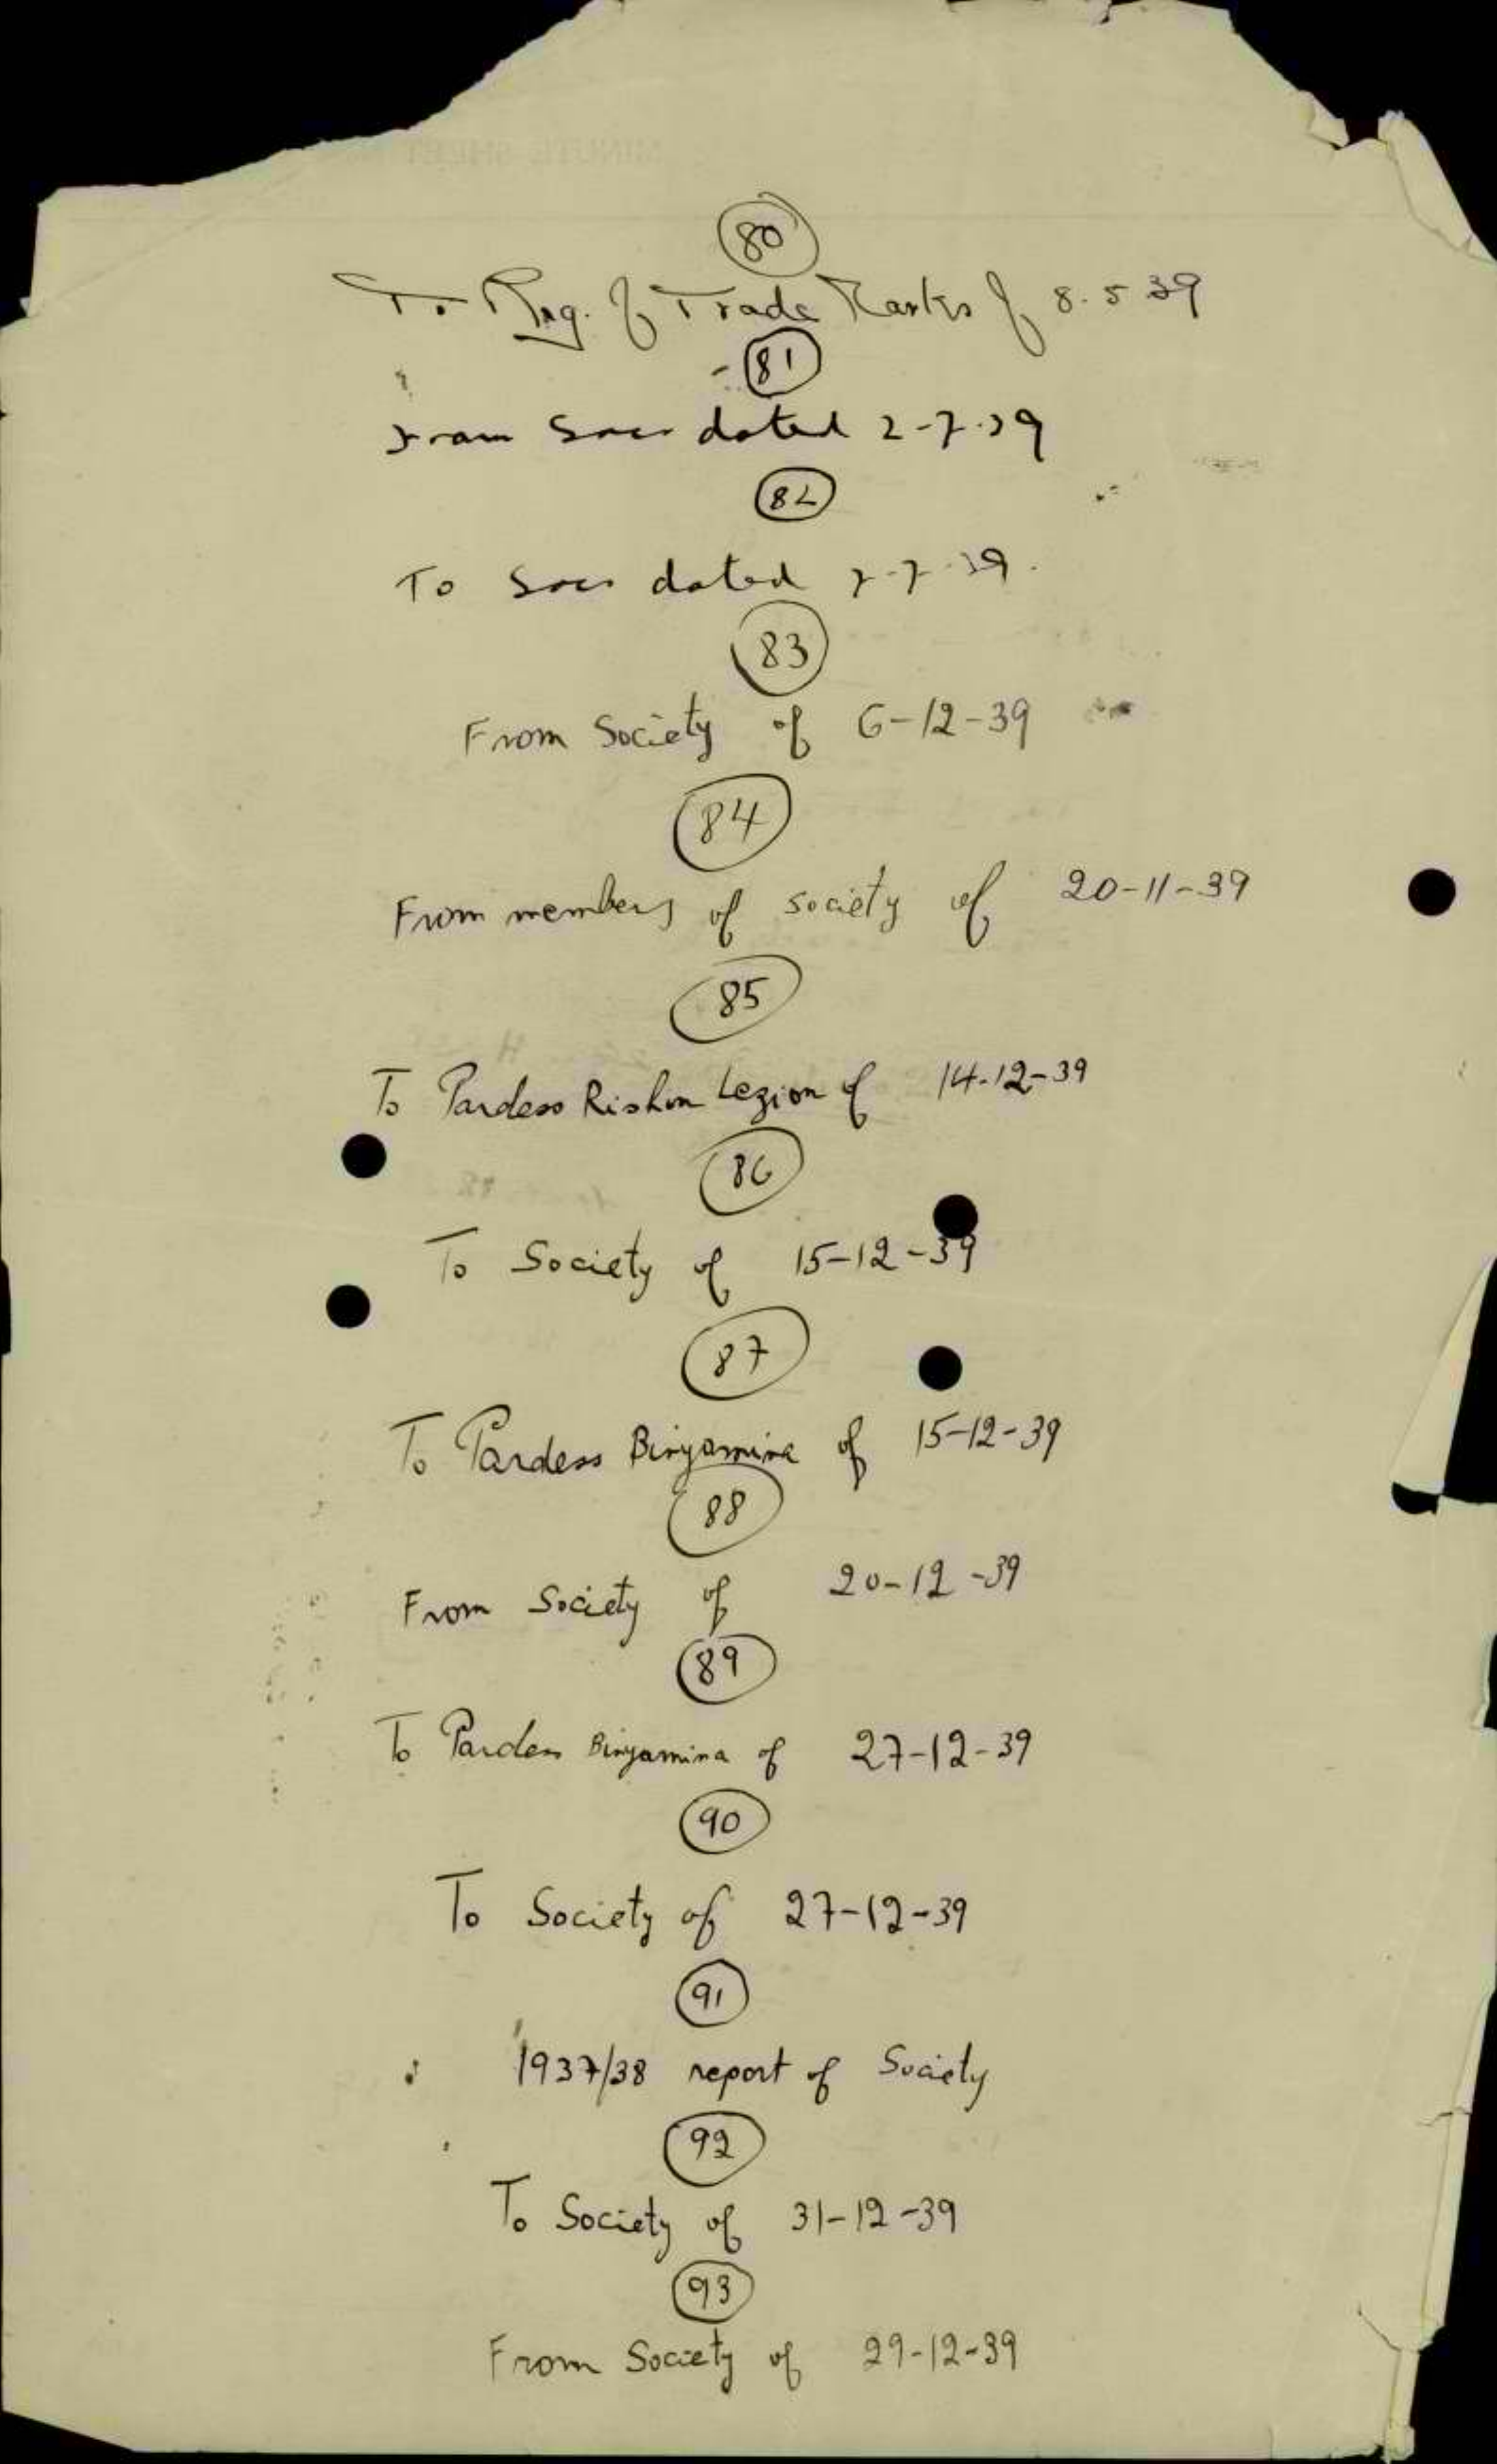 80
To Reg. of Trade Marks of 8.5.39
81
From Soc. dated 2-7-39
82
To Soc. dated 7-7-39.
83
From Society of 6-12-39
84
From members of society of 20-11-39
85
To Pardess Rishon Lezion of 14-12-39
86
To Society of 15-12-39
87
To Pardess Binyamina of 15-12-39
88
From Society of 20-12-39
89
To Pardess Binyamina of 27-12-39
90
To Society of 27-12-39
91
1937/38 report of Society
92
To Society of 31-12-39
93
From Society of 29-12-39